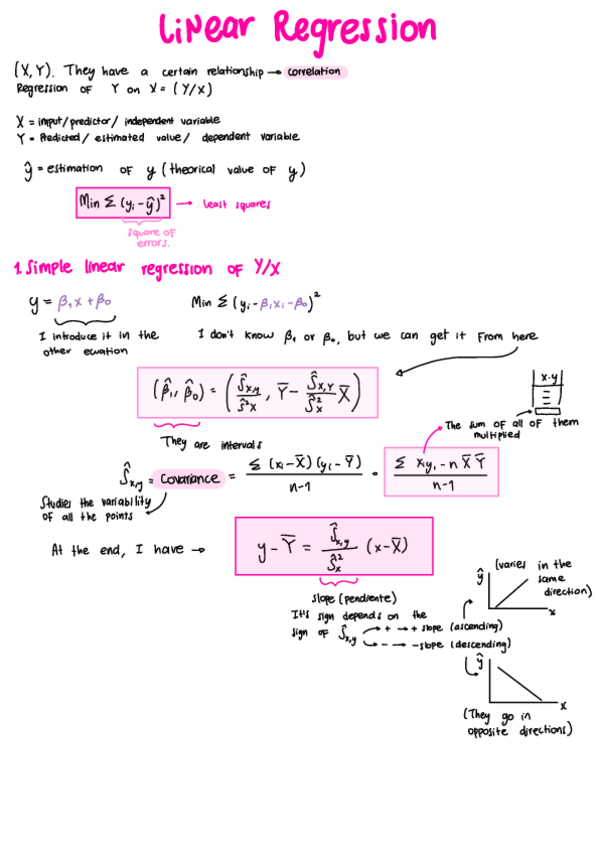 Linear Regression
(X, Y). They have a certain relationship → correlation
Regression of Y on X = (Y/X)
X = input/predictor/independent variable
Y = Predicted/estimated value/dependent variable
ŷ = estimation of y (theorical value of y)
Min Σ (yᵢ - ŷ)² → least squares
square of
errors.
1. Simple linear regression of Y/X
y = β₁x + β₀
Min Σ (yᵢ - β₁xᵢ - β₀)²
I introduce it in the
other ewation
I don't know β₁ or β₀, but we can get it from here
(β̂₁, β̂₀) = (Ŝx,y / Ŝ²x , Y̅ - Ŝx,y / Ŝ²x X̅)
x.y
The sum of all of them
multiplied
They are intervals
Ŝx,y = Covariance = Σ (xᵢ - X̅)(yᵢ - Y̅) / n-1 = Σ xᵢyᵢ - n X̅ Y̅ / n-1
Studies the variability
of all the points
At the end, I have → y - Y̅ = Ŝx,y / Ŝ²x (x - X̅)
slope (pendiente)
It's sign depends on the
sign of Ŝx,y
+ → + slope (ascending)
- → - slope (descending)
ŷ
x
(varies in the
same
direction)
ŷ
x
(They go in
opposite directions)